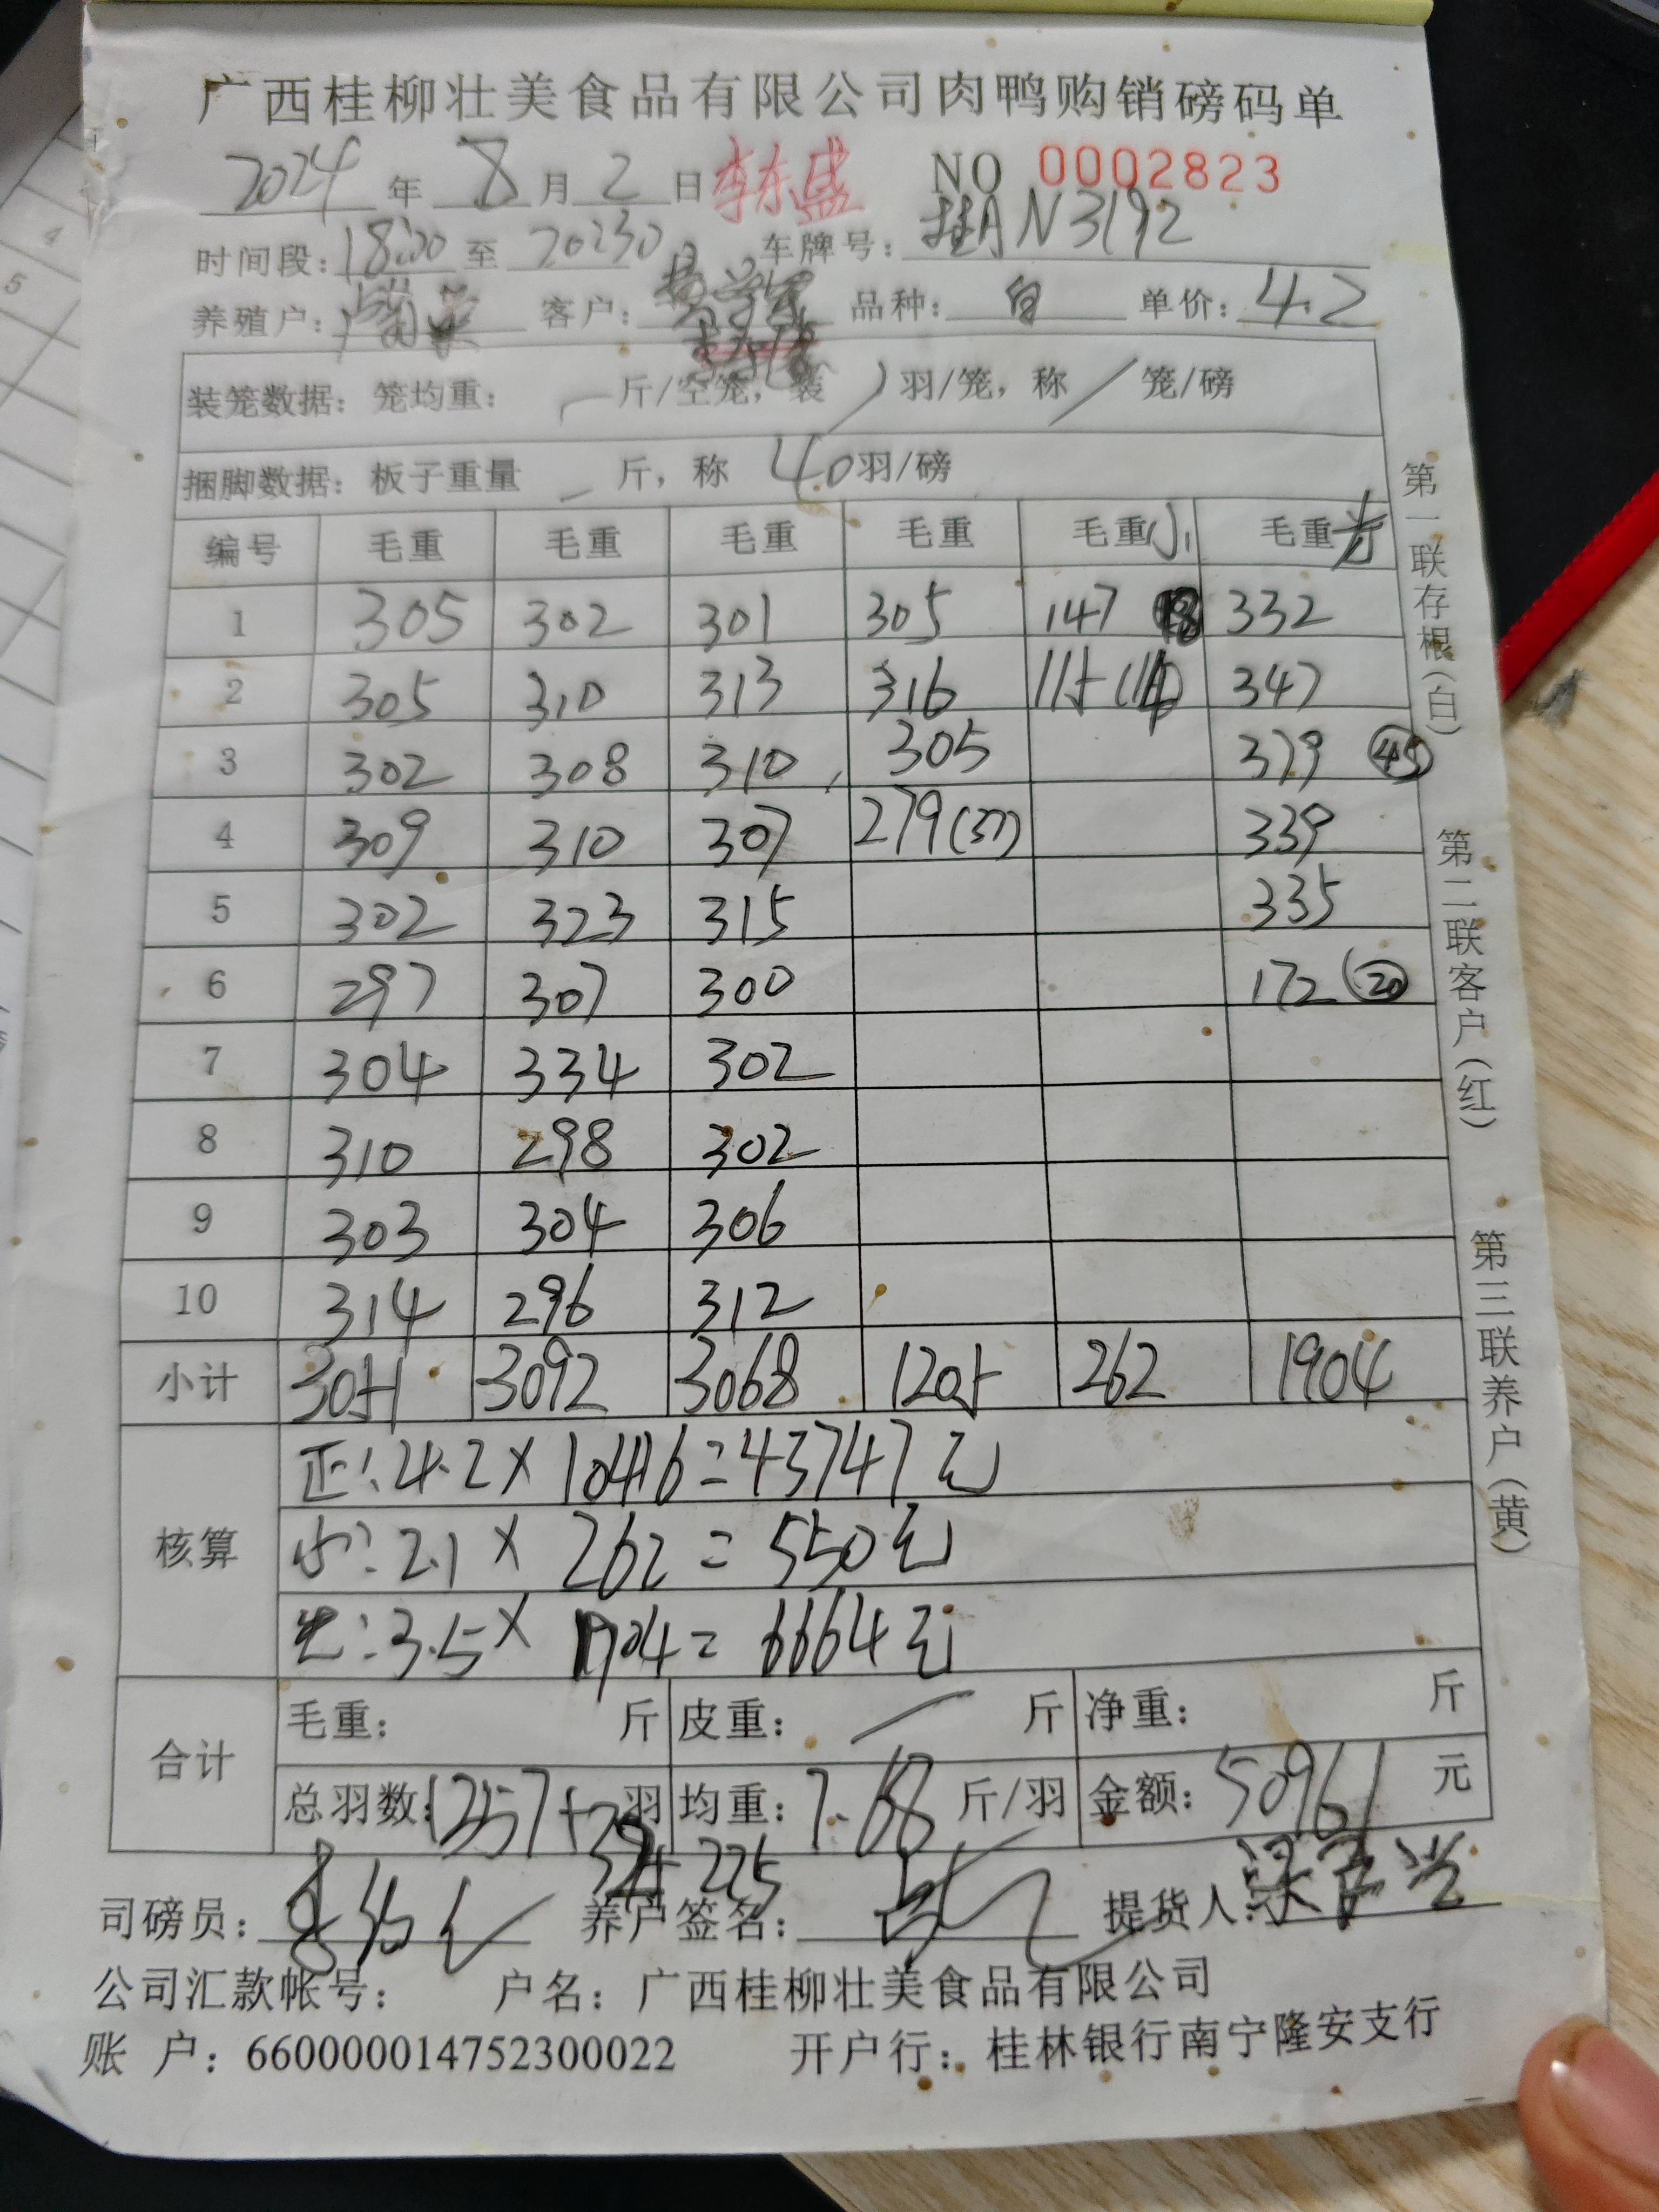 广西桂柳壮美食品有限公司肉鸭购销磅码单
2024 年 8 月 2 日 李东盛 NO 0002823
时间段：18:00 至 20:30 车牌号：桂A N3192
养殖户： 客户： 品种：白 单价：4.2
装笼数据：笼均重： 斤/空笼，装 羽/笼，称 / 笼/磅
捆脚数据：板子重量 — 斤，称 40 羽/磅
编号 毛重 毛重 毛重 毛重 毛重小 毛重
1 305 302 301 305 147 332
2 305 310 313 316 115 347
3 302 308 310 305 379 (45)
4 309 310 307 279(37) 339
5 302 323 315 335
6 297 307 300 172 (20)
7 304 334 302
8 310 298 302
9 303 304 306
10 314 296 312
小计 3051 3092 3068 1205 262 1904
核算 正：4.2×10416=43747元
小：2.1×262=550元
3.5×1904=6664元
合计 毛重： 斤 皮重：— 斤 净重： 斤
总羽数：1357+ 羽 均重：7.68 斤/羽 金额：50961 元
+225
司磅员： 养户签名： 提货人：
公司汇款帐号： 户名：广西桂柳壮美食品有限公司
账 户：660000014752300022 开户行：桂林银行南宁隆安支行
第一联存根(白)
第二联客户(红)
第三联养户(黄)